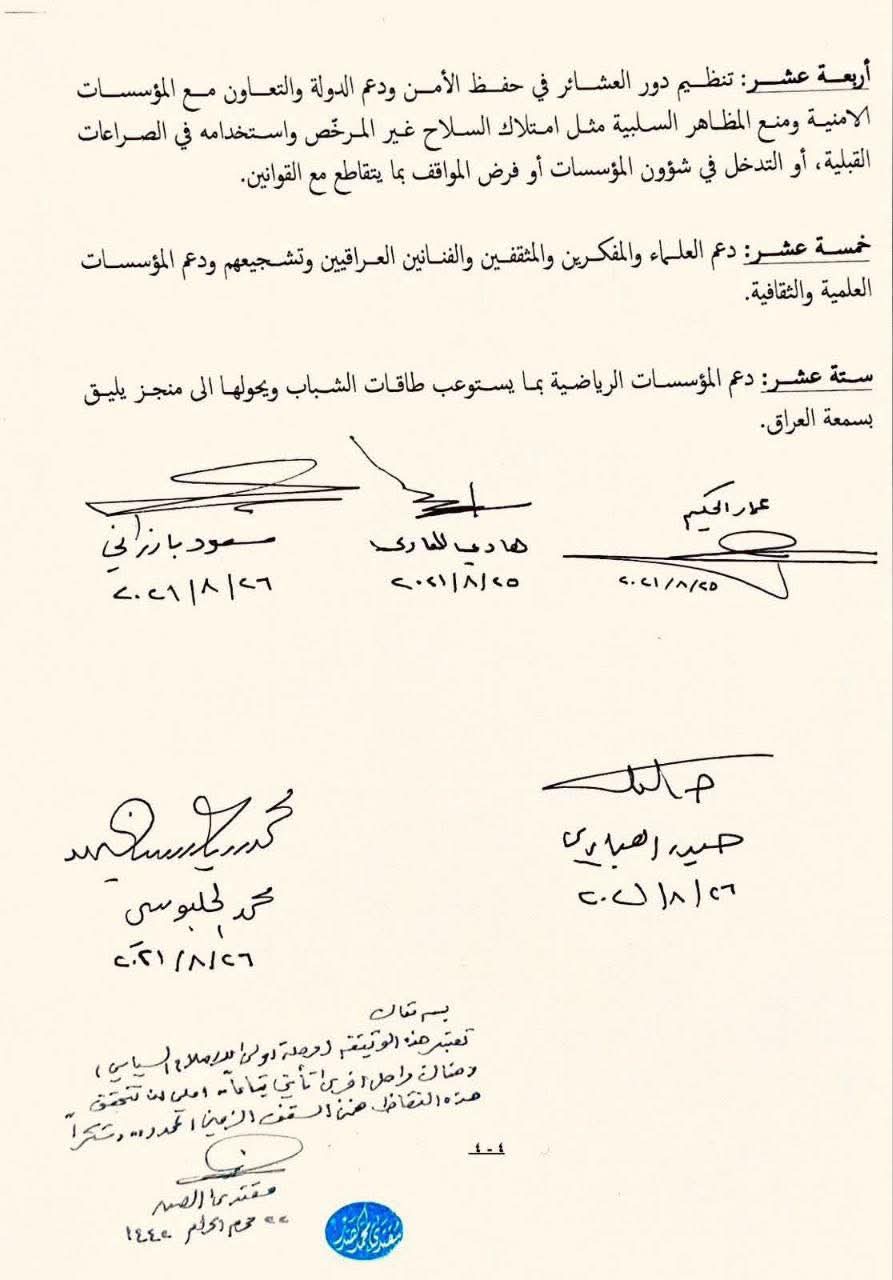 أربعة عشر: تنظيم دور العشائر في حفظ الأمن ودعم الدولة والتعاون مع المؤسسات
الامنية ومنع المظاهر السلبية مثل امتلاك السلاح غير المرخّص واستخدامه في الصراعات
القبلية، أو التدخل في شؤون المؤسسات أو فرض المواقف بما يتقاطع مع القوانين.
خمسة عشر: دعم العلماء والمفكرين والمثقفين والفنانين العراقيين وتشجيعهم ودعم المؤسسات
العلمية والثقافية.
ستة عشر: دعم المؤسسات الرياضية بما يستوعب طاقات الشباب ويحولها الى منجز يليق
بسمعة العراق.
عمار الحكيم
٢٠٢١/٨/٢٥
هادي العامري
٢٠٢١/٨/٢٥
مسعود بارزاني
٢٠٢١/٨/٢٦
حيدر العبادي
٢٠٢١/٨/٢٦
محمد الحلبوسي
٢٠٢١/٨/٢٦
بسمه تعالى
تعتبر هذه الوثيقة (مرحلة اولى للاصلاح السياسي)
وهناك مراحل اخرى تأتي تباعاً.. املي ان تتحقق
هذه النقاط ضمن السقف الزمني المحدد.. وشكراً
مقتدى الصدر
٢٢ محرم الحرام ١٤٤٢
٤-٤